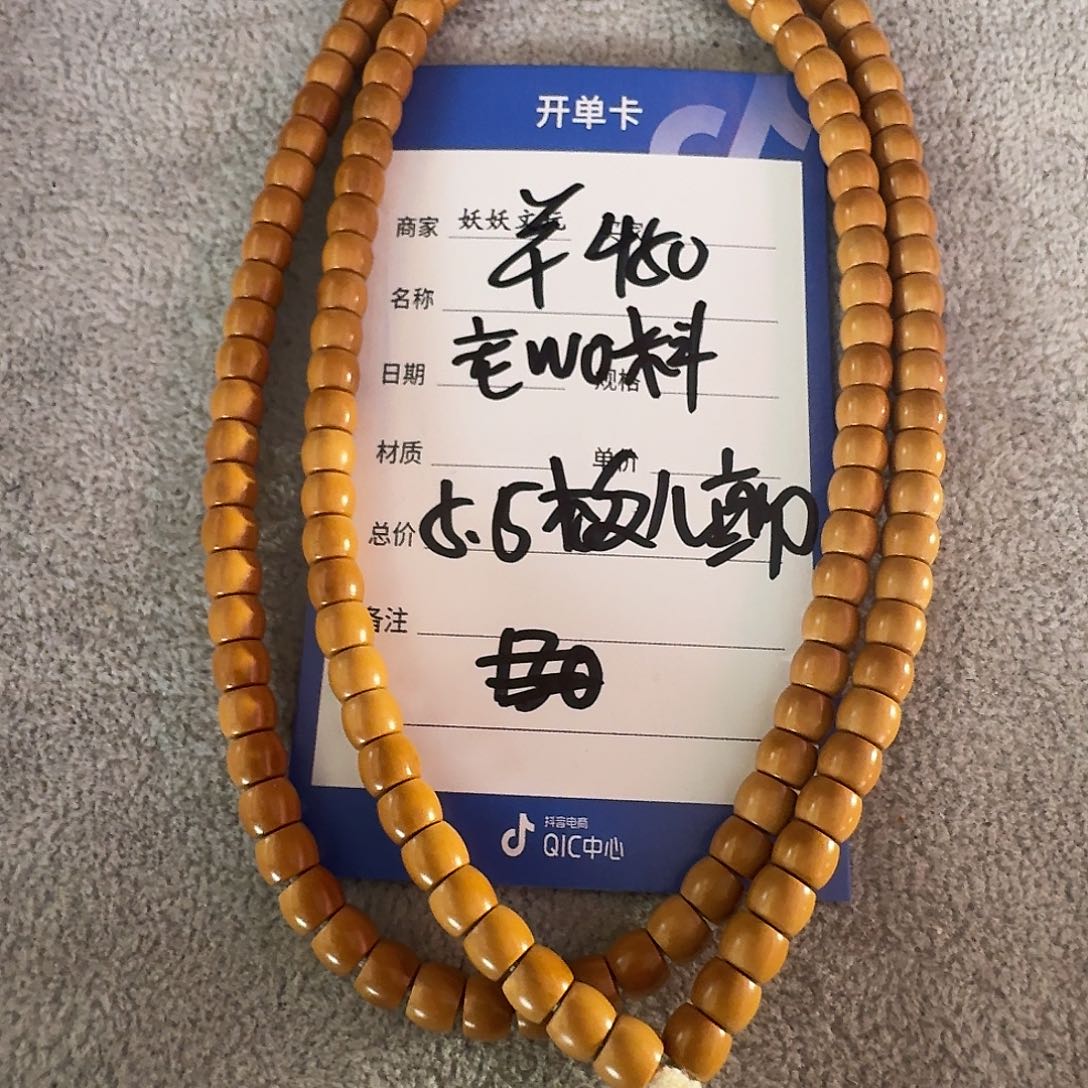 开单卡
商家 妖妖文玩
羊 480
名称
宅WO料
日期 规格
材质 单价
5.5
总价
备注
抖音电商
QIC中心